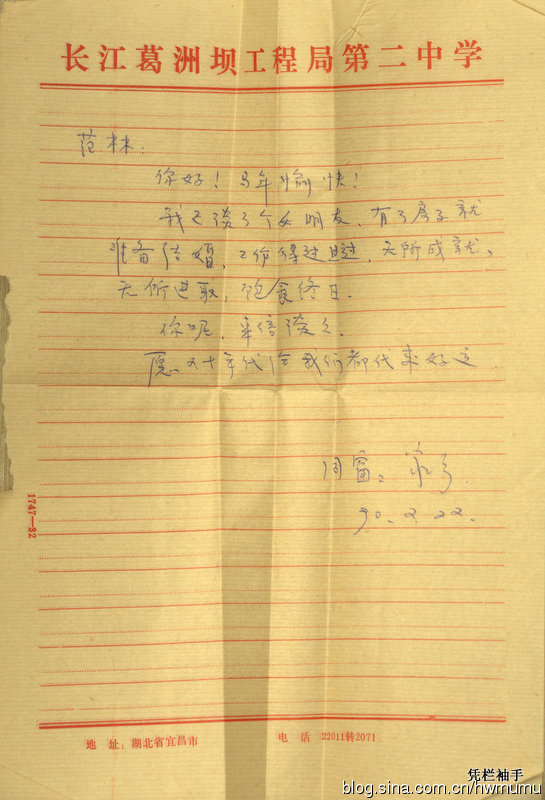 长江葛洲坝工程局第二中学
范林：
你好！马年愉快！
我已谈了个女朋友，有了房子就
准备结婚，工作得过且过，无所成就、
无所进取，饱食终日。
你呢，来信谈之．
愿九十年代给我们都代来好运
同窗：
90．2．22．
1747—32
地 址：湖北省宜昌市 电 话 22011转2071
凭栏袖手
blog.sina.com.cn/hwmumu